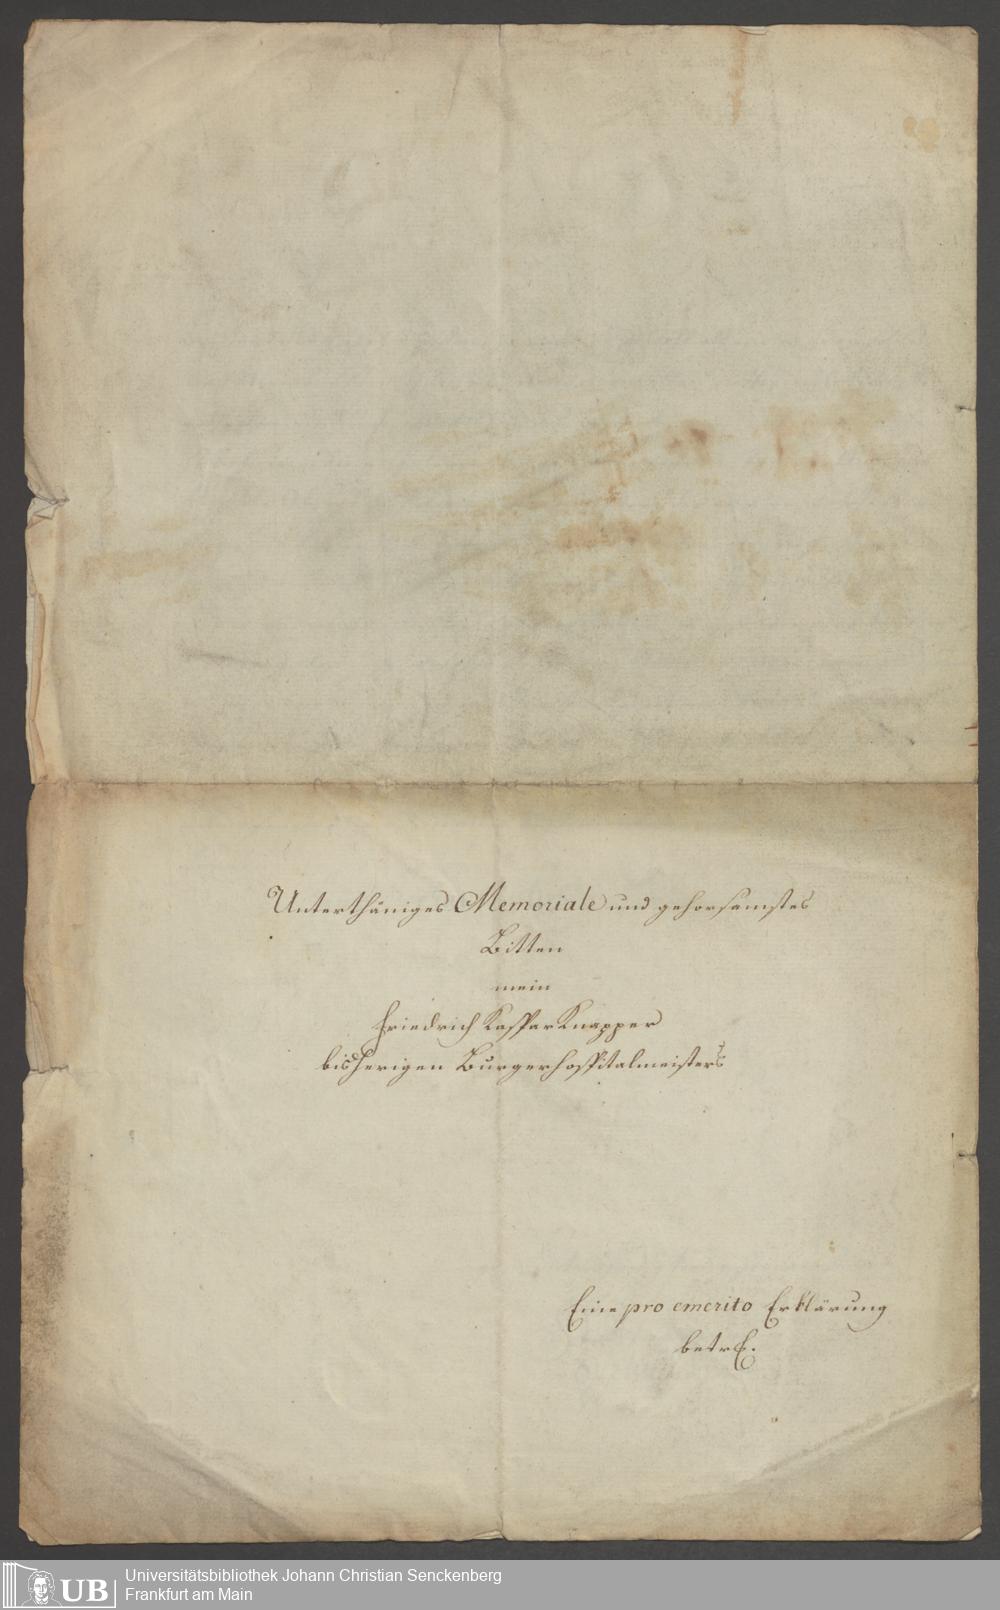 Unterthäniges Memoriale und gehorsamstes
Bitten
mein
Friedrich Kaspar Knapper
bisherigen Burgerhospitalmeisters
Eine pro emerito Erklärung
betr.
UB Universitätsbibliothek Johann Christian Senckenberg
Frankfurt am Main